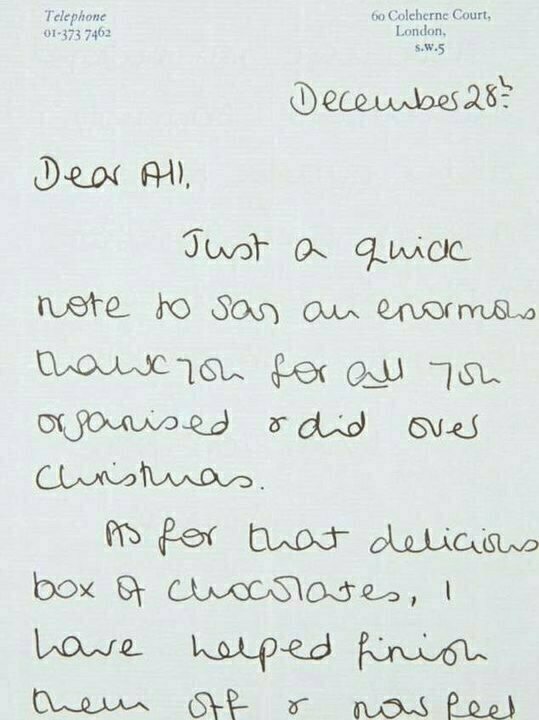 Telephone
01-373 7462
60 Coleherne Court,
London,
S.W.5
December 28th
Dear All,
Just a quick
note to say an enormous
thank you for all you
organised & did over
Christmas.
As for that delicious
box of chocolates, I
have helped finish
them off & now feel